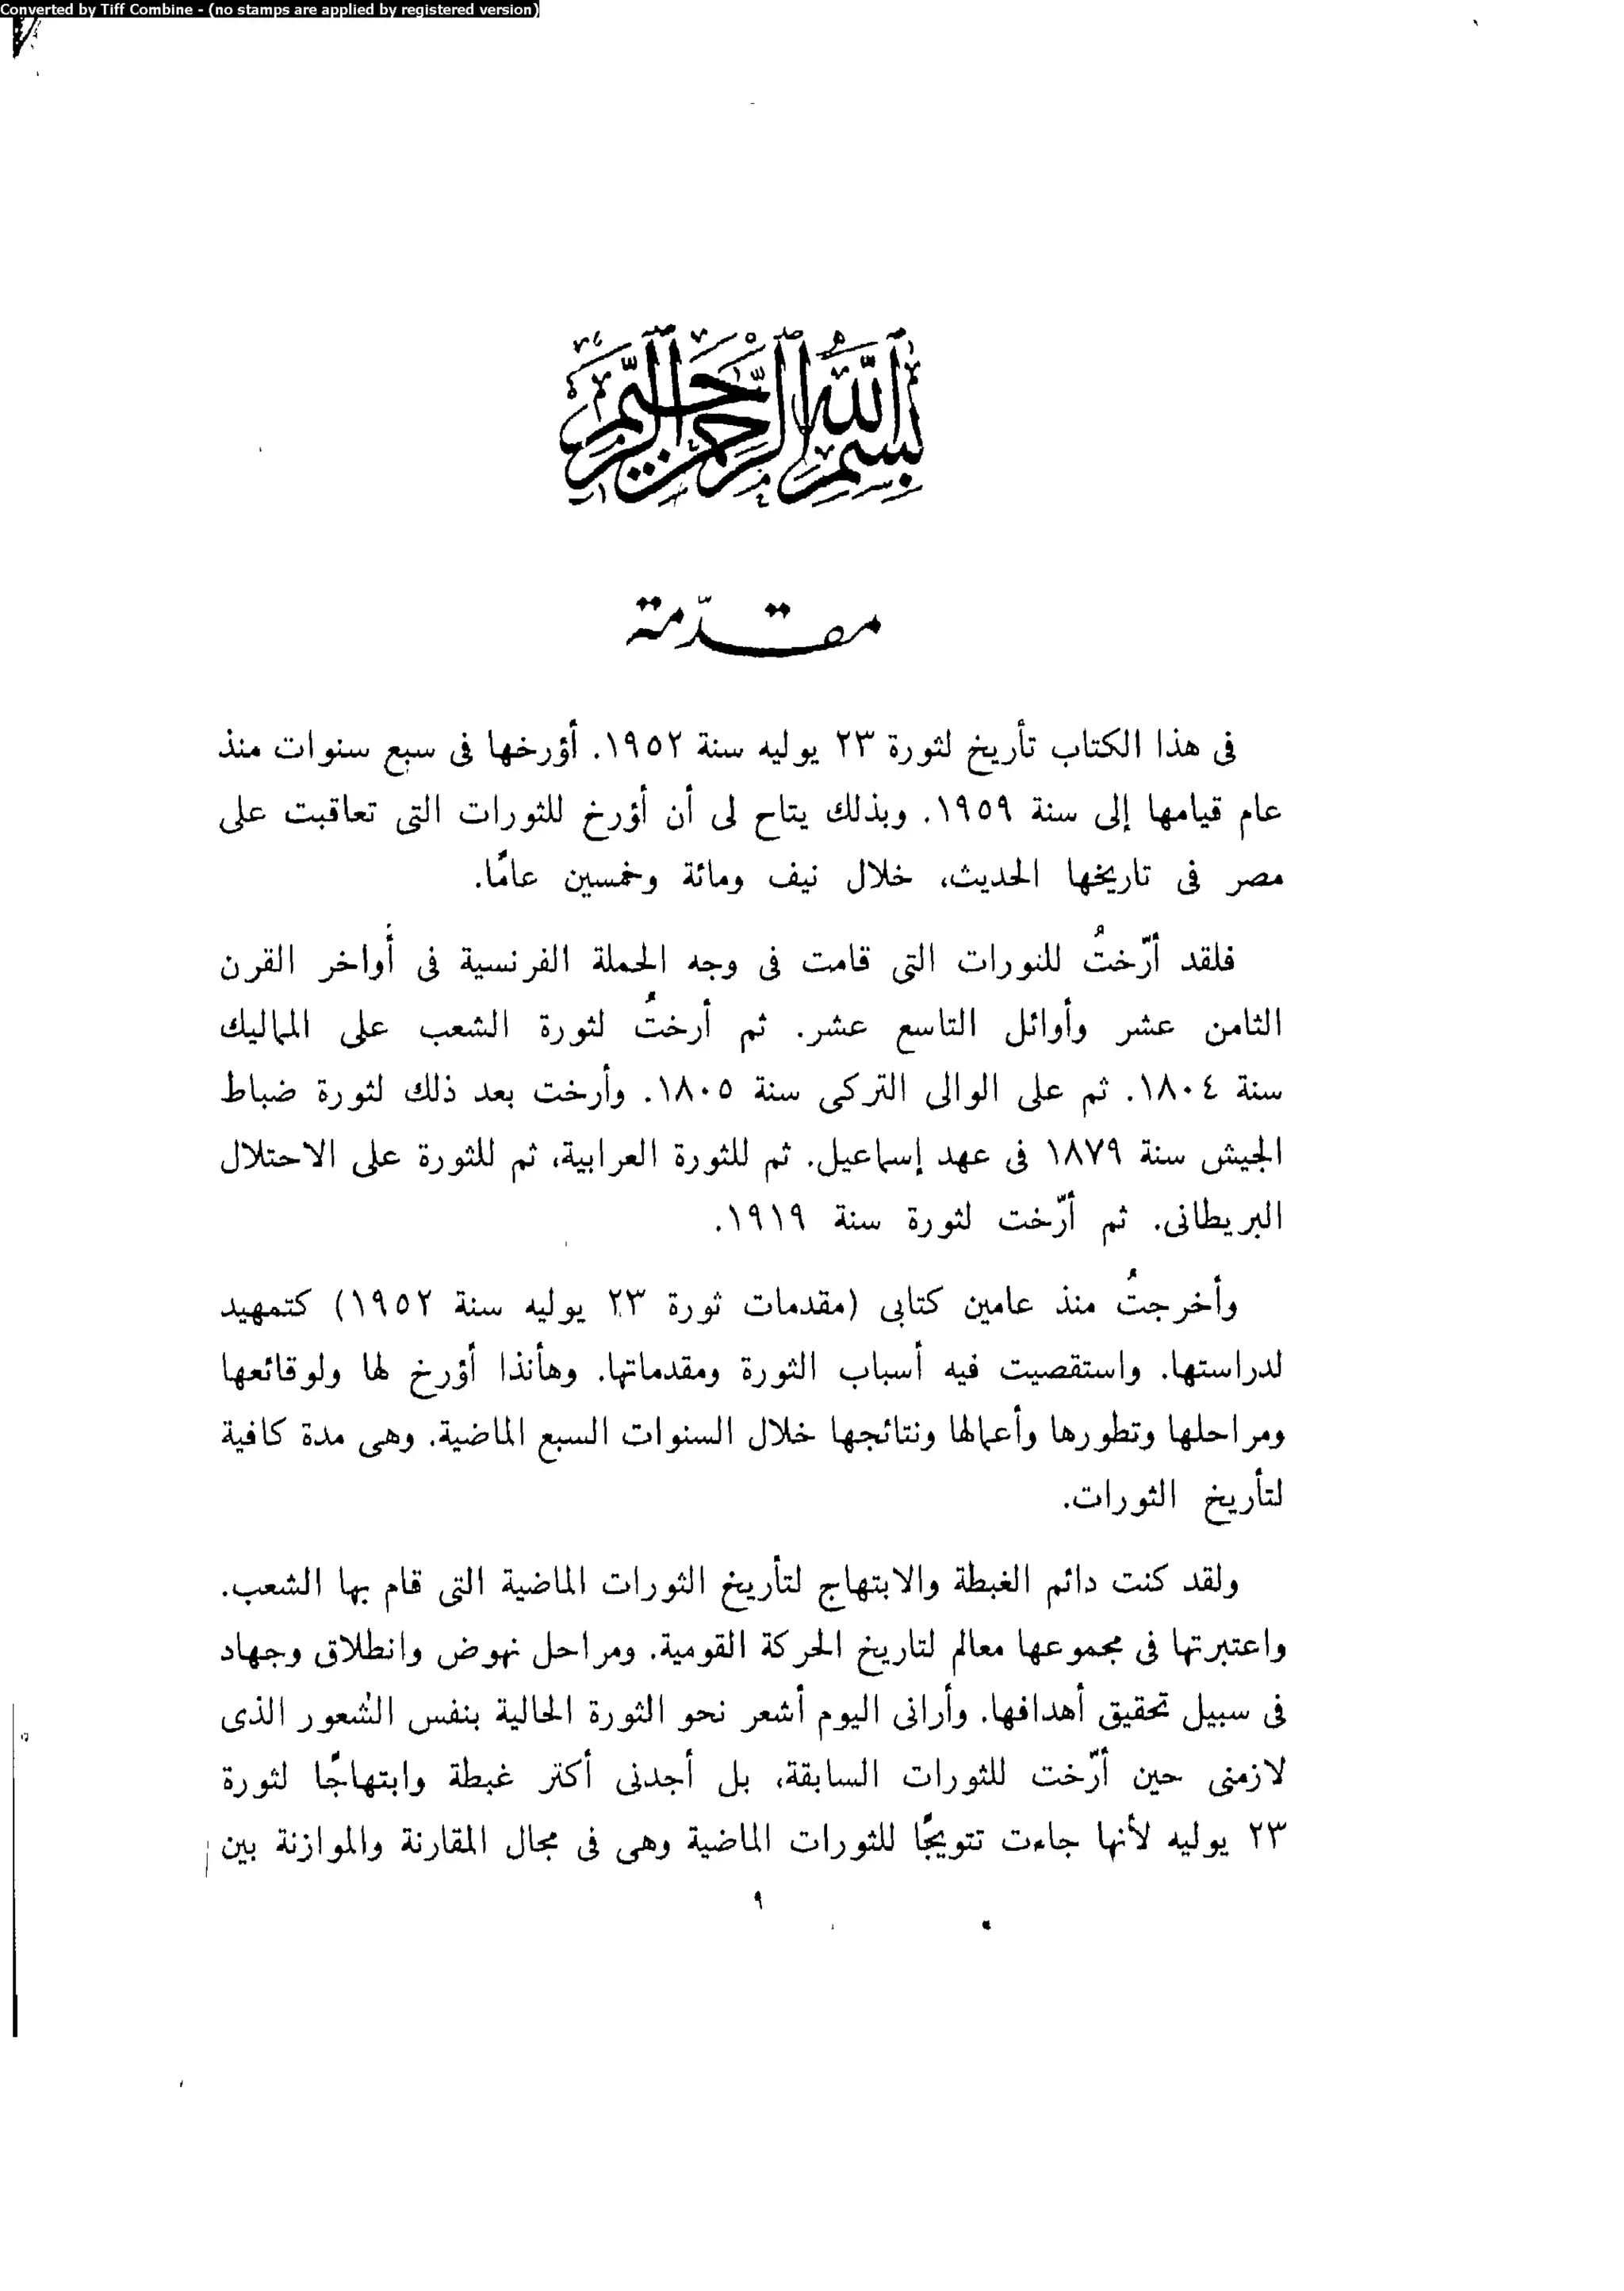 Converted by Tiff Combine - (no stamps are applied by registered version)
بسم الله الرحمن الرحيم
مقدّمة
فى هذا الكتاب تأريخ لثورة ٢٣ يوليه سنة ١٩٥٢. أؤرخها فى سبع سنوات منذ
عام قيامها إلى سنة ١٩٥٩. وبذلك يتاح لى أن أؤرخ للثورات التى تعاقبت على
مصر فى تاريخها الحديث، خلال نيف ومائة وخمسين عامًا.
فلقد أرّختُ للثورات التى قامت فى وجه الحملة الفرنسية فى أواخر القرن
الثامن عشر وأوائل التاسع عشر. ثم أرختُ لثورة الشعب على المماليك
سنة ١٨٠٤. ثم على الوالى التركى سنة ١٨٠٥. وأرخت بعد ذلك لثورة ضباط
الجيش سنة ١٨٧٩ فى عهد إسماعيل. ثم للثورة العرابية، ثم للثورة على الاحتلال
البريطانى. ثم أرّخت لثورة سنة ١٩١٩.
وأخرجتُ منذ عامين كتابى (مقدمات ثورة ٢٣ يوليه سنة ١٩٥٢) كتمهيد
لدراستها. واستقصيت فيه أسباب الثورة ومقدماتها. وهأنذا أؤرخ لها ولوقائعها
ومراحلها وتطورها وأعمالها ونتائجها خلال السنوات السبع الماضية. وهى مدة كافية
لتأريخ الثورات.
ولقد كنت دائم الغبطة والابتهاج لتأريخ الثورات الماضية التى قام بها الشعب.
واعتبرتها فى مجموعها معالم لتاريخ الحركة القومية. ومراحل نهوض وانطلاق وجهاد
فى سبيل تحقيق أهدافها. وأرانى اليوم أشعر نحو الثورة الحالية بنفس الشعور الذى
لازمنى حين أرّخت للثورات السابقة، بل أجدنى أكثر غبطة وابتهاجًا لثورة
٢٣ يوليه لأنها جاءت تتويجًا للثورات الماضية وهى فى مجال المقارنة والموازنة بين
٩